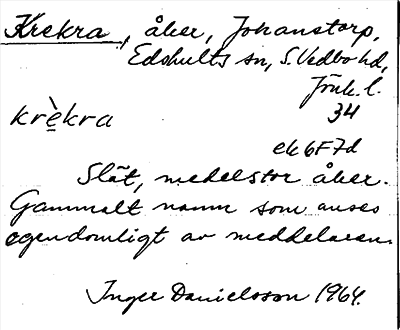 Krekra, åker, Johanstorp,
Edshults sn, S. Vedbo hd,
Jönk. l.
34
krèkra
ek 6F7d
Slät, medelstor åker.
Gammalt namn som anses
egendomligt av meddelaren.
Inger Danielsson 1964.